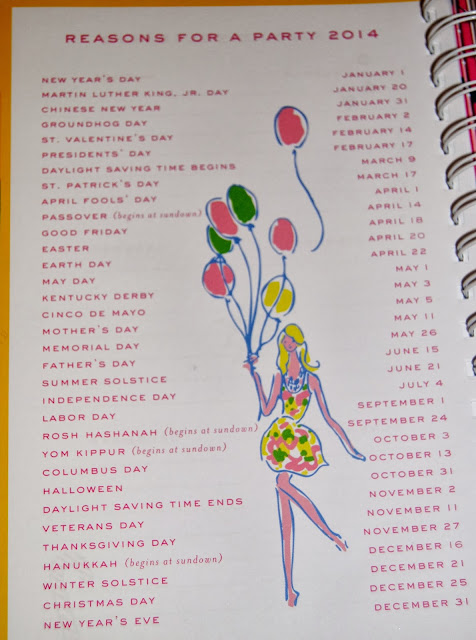 REASONS FOR A PARTY 2014
NEW YEAR'S DAY JANUARY 1
MARTIN LUTHER KING, JR. DAY JANUARY 20
CHINESE NEW YEAR JANUARY 31
GROUNDHOG DAY FEBRUARY 2
ST. VALENTINE'S DAY FEBRUARY 14
PRESIDENTS' DAY FEBRUARY 17
DAYLIGHT SAVING TIME BEGINS MARCH 9
ST. PATRICK'S DAY MARCH 17
APRIL FOOLS' DAY APRIL 1
PASSOVER (begins at sundown) APRIL 14
GOOD FRIDAY APRIL 18
EASTER APRIL 20
EARTH DAY APRIL 22
MAY DAY MAY 1
KENTUCKY DERBY MAY 3
CINCO DE MAYO MAY 5
MOTHER'S DAY MAY 11
MEMORIAL DAY MAY 26
FATHER'S DAY JUNE 15
SUMMER SOLSTICE JUNE 21
INDEPENDENCE DAY JULY 4
LABOR DAY SEPTEMBER 1
ROSH HASHANAH (begins at sundown) SEPTEMBER 24
YOM KIPPUR (begins at sundown) OCTOBER 3
COLUMBUS DAY OCTOBER 13
HALLOWEEN OCTOBER 31
DAYLIGHT SAVING TIME ENDS NOVEMBER 2
VETERANS DAY NOVEMBER 11
THANKSGIVING DAY NOVEMBER 27
HANUKKAH (begins at sundown) DECEMBER 16
WINTER SOLSTICE DECEMBER 21
CHRISTMAS DAY DECEMBER 25
NEW YEAR'S EVE DECEMBER 31